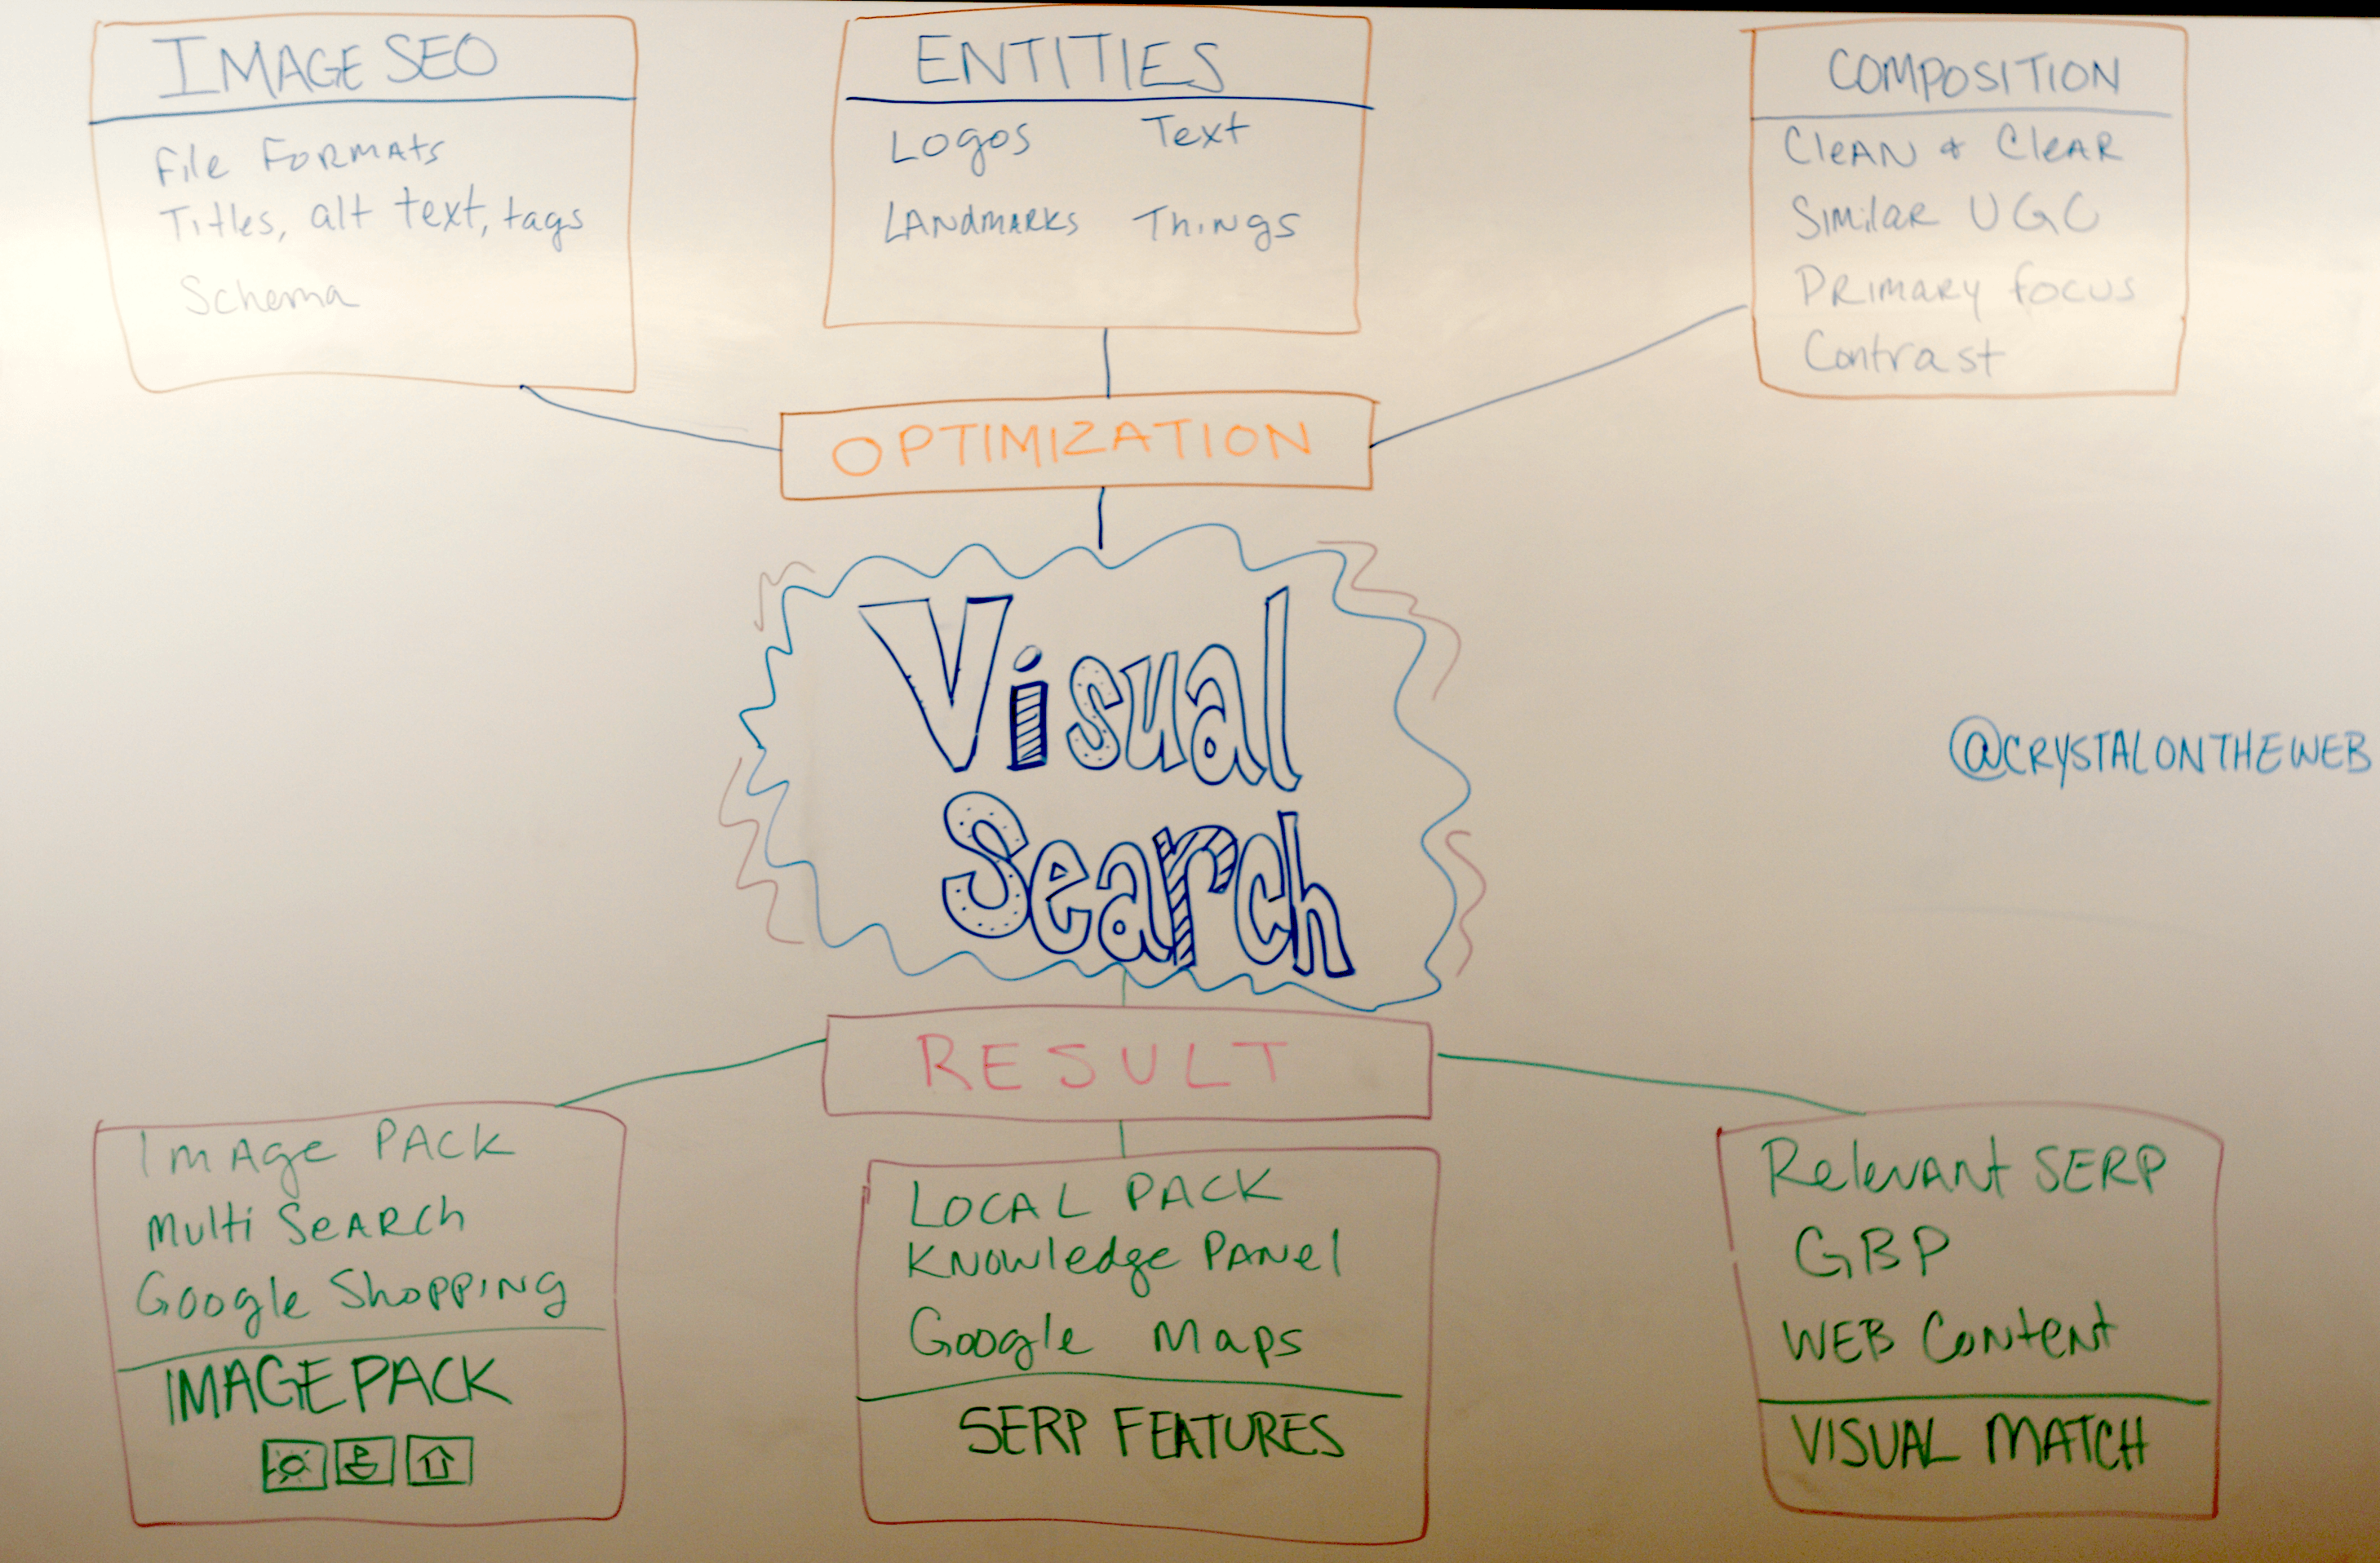 IMAGE SEO
File Formats
Titles, alt text, tags
Schema
ENTITIES
Logos Text
Landmarks Things
COMPOSITION
Clean & Clear
Similar UGC
Primary focus
Contrast
OPTIMIZATION
Visual
Search
@CRYSTALONTHEWEB
RESULT
Image PACK
Multi Search
Google Shopping
IMAGE PACK
LOCAL PACK
Knowledge Panel
Google Maps
SERP FEATURES
Relevant SERP
GBP
WEB Content
VISUAL MATCH